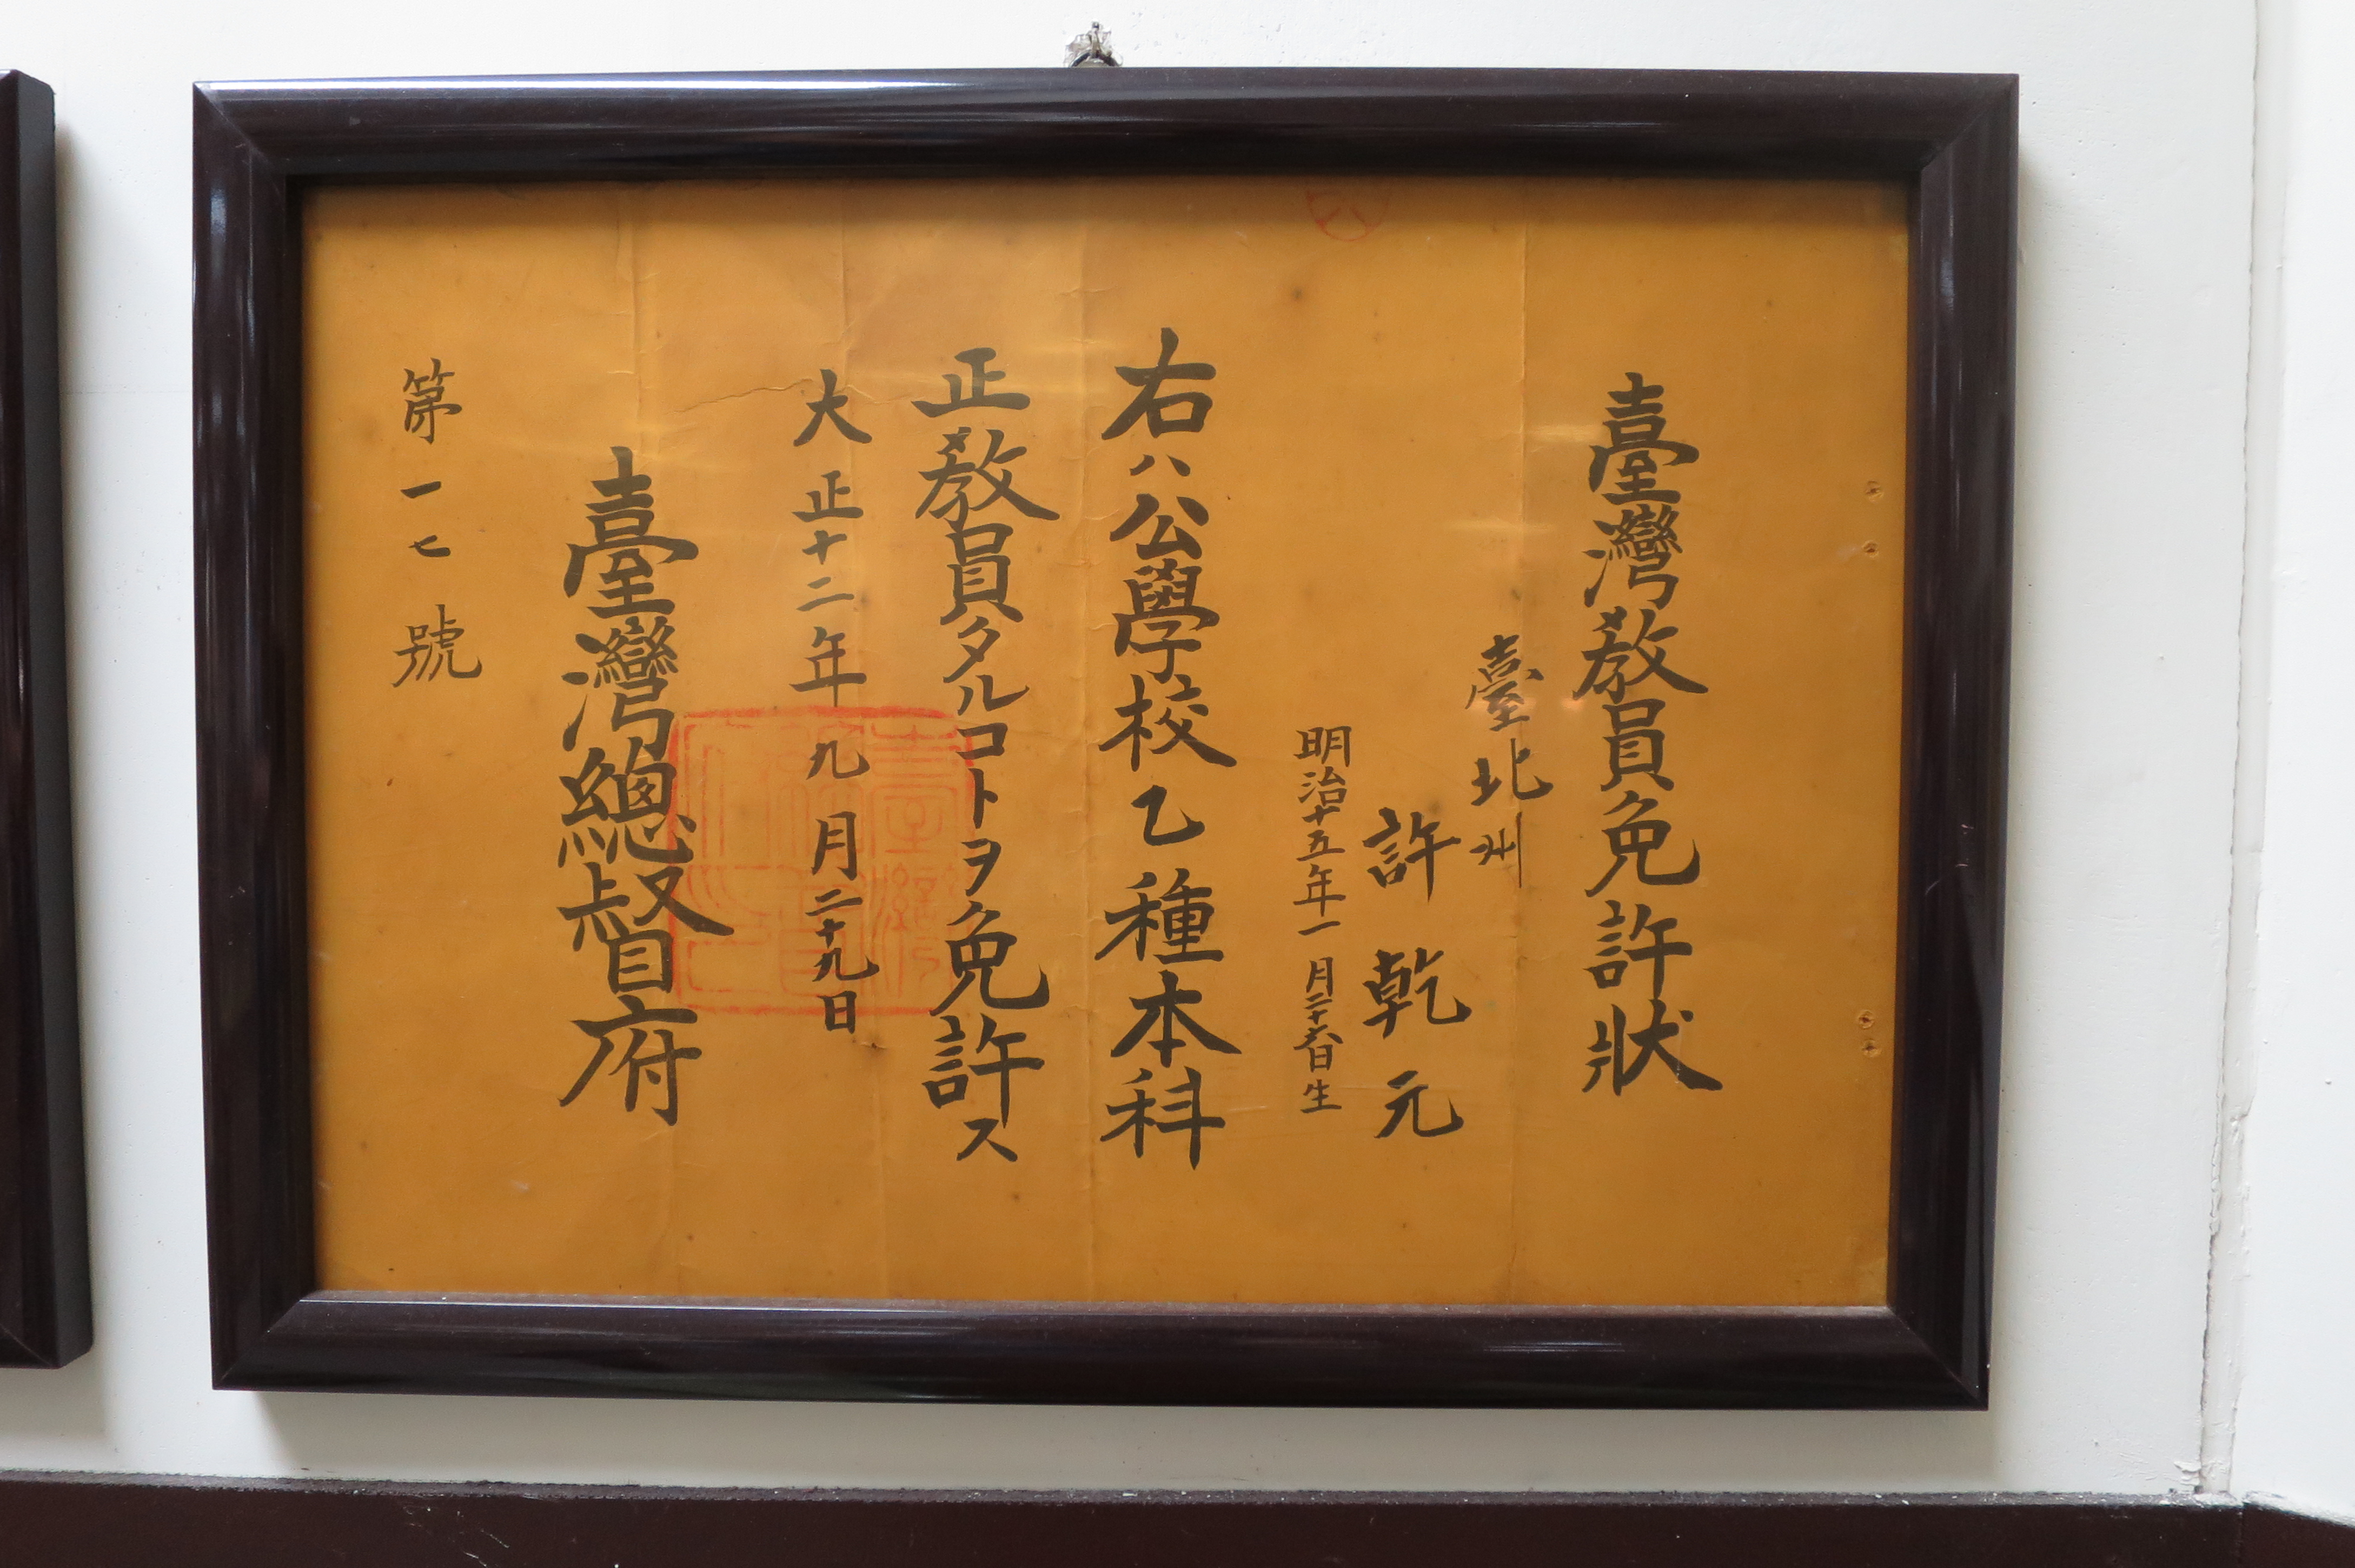 臺灣教員免許狀
臺北州
許乾元
明治十五年一月二十六日生
右ハ公學校乙種本科
正教員タルコトヲ免許ス
大正十二年九月二十九日
臺灣總督府
第一七號